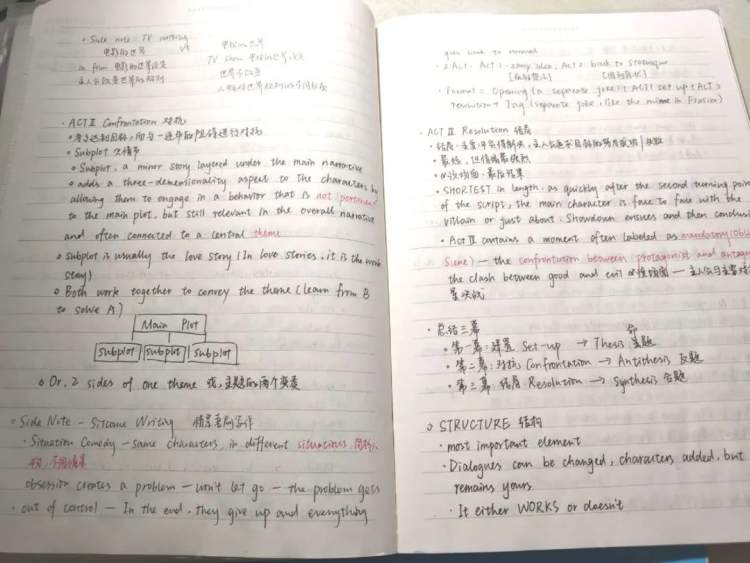 Side note: TV writing
电影的世界 vs 电视的世界
TV show
世界不改变
· ACT II Confrontation 对抗
· 为了达到目标,而与一连串的阻碍进行对抗
· Subplot 次情节
· Subplot, a minor story layered under the main narrative
· adds a three-demensionality aspect to the characters by
allowing them to engage in a behavior that is not pertinent
to the main plot, but still relevant in the overall narrative
and often connected to a central theme
o subplot is usually the love story (In love stories, it is the work
story)
· Both work together to convey the theme (learn from B
to solve A)
Main Plot
subplot subplot subplot
o Or, 2 sides of one theme 或,主题的两个变奏
o Side Note - Sitcome Writing 情景喜剧写作
· Situation Comedy - same characters, in different situations
不同情景
obsession creates a problem - won't let go - the problem gets
· out of control - In the end, they give up and everything
goes back to normal
· 2 ACT: ACT 1 - story idea, ACT 2 back to
· Format = Opening (a separate joke) + ACT 1 (set up + ACT 2
+ Tag (separate joke, like the in Frasier)
· ACT III Resolution 结局
· 最后,
· SHORTEST in length, as quickly after the second turning point
of the script, the main character is face to face with the
villain or just about. Showdown ensues and then conclusi
· Act III contains a moment often labeled as mandatory (Obli
Scene) — the confrontation between protagonist and antago
the clash between good and evil 必须场面 — 主人公与
· 总结三幕
· 第一幕: 建置 Set-up → Thesis 命题
· 第二幕: 对抗 Confrontation → Antithesis 反题
· 第三幕: 结局 Resolution → Synthesis 合题
o STRUCTURE 结构
· most important element
· Dialogues can be changed, characters added, but
remains yours
· It either WORKS or doesn't